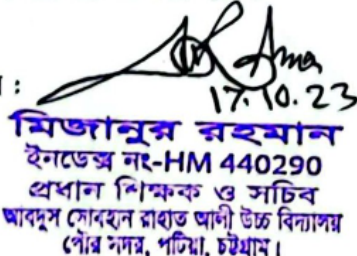 :
17.10.23
মিজানুর রহমান
ইনডেক্স নং-HM 440290
প্রধান শিক্ষক ও সচিব
আবদুস সোবহান রাহাত আলী উচ্চ বিদ্যালয়
পৌর সদর, পটিয়া, চট্টগ্রাম।